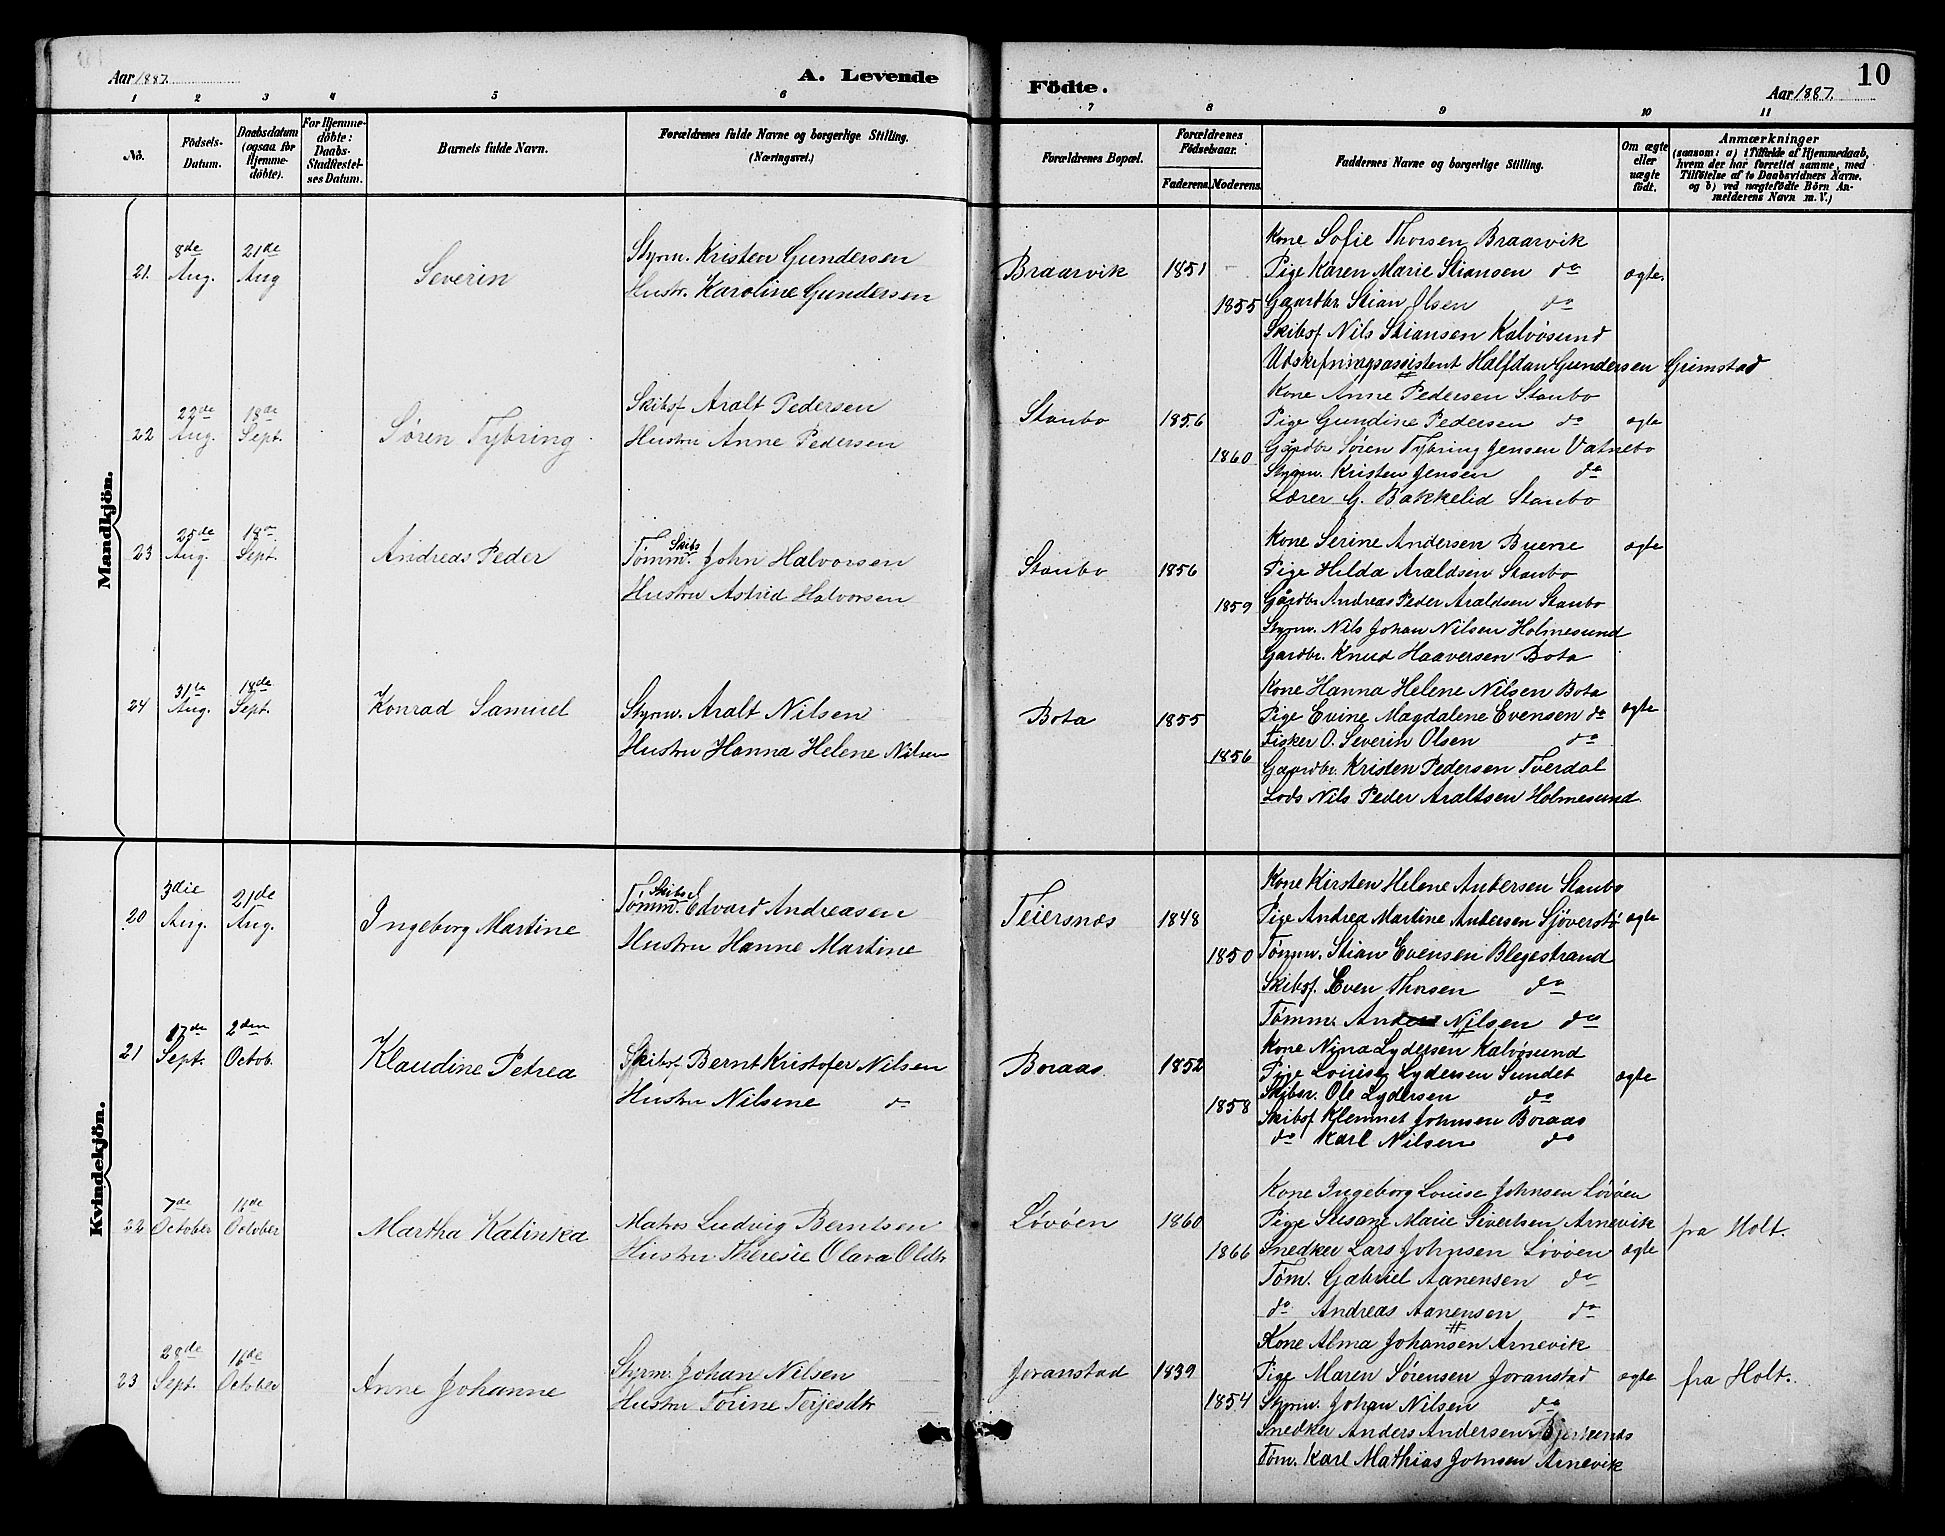 Aar 1887.
A. Levende
Födte.
Aar 1887.
10
1
2
3
4
5
6
7
8
9
10
11
No.
Födsels-Datum.
Daabsdatum (ogsaa for Hjemme-döbte).
For Hjemme-döbte: Daabs-Stadfæstel-ses Datum.
Barnets fulde Navn.
Forældrenes fulde Navne og borgerlige Stilling. (Næringsvei.)
Forældrenes Bopæl.
Forældrenes Födselsaar.
Faderens.
Moderens.
Faddernes Navne og borgerlige Stilling.
Om ægte eller uægte födt.
Anmærkninger
(saasom: a) i Tilfælde af Hjemmedaab, hvem der har forrettet samme, med Tilföielse af to Daabsvidners Navne, og b) ved uægtefödte Börn An-melderens Navn m. V.)
Mandkjön.
21.
8de Aug.
21de Aug
Severin
Styrm. Kristen Gundersen
Hustr. Karoline Gundersen
Braarvik
1851
1855
Kone Sofie Thorsen Braarvik
Pige Karen Marie Stiansen do
Gaardbr. Stian Olsen do
Skibsf Nils Stiansen Kalvøsund
Udskiftningsassistent Halfdan Gundersen Grimstad
ægte.
22
22de Aug.
18de Sept.
Søren Tybring
Skibsf Aralt Pedersen
Hustru Anne Pedersen
Staubo
1856
1860
Kone Anne Pedersen Staubo
Pige Gundine Pedersen do
Gårdbr Søren Tybring Jensen Vatnebo
Styrm. Kristen Jensen do
Lærer G. Bakkelid Staubo
ægte
23
25de Aug.
18de Sept.
Andreas Peder
Skibs
Tømm. John Halvorsen
Hustru Astrid Halvorsen
Staubo
1856
1859
Kone Serine Andersen Buene
Pige Hilda Araldsen Staubo
Gårdbr Andreas Peder Araldsen Staubo
Styrm. Nils Johan Nilsen Holmesund
Gardbr. Knud Haaversen Bota
ægte
24
31te Aug.
18de Sept.
Konrad Samuel
Styrm. Aralt Nilsen
Hustru Hanna Helene Nilsen
Bota
1855
1856
Kone Hanna Helene Nilsen Bota
Pige Evine Magdalene Evensen do
Fisker O. Severin Olsen do
Gaardbr. Kristen Pedersen Tverdal
Lods Nils Peder Araltsen Holmesund
ægte
Kvindekjön.
20
3die Aug.
21de Aug.
Ingeborg Martine
Skibs
Tømm. Edvard Andreasen
Hustru Hanne Martine
Teiersnæs
1848
1850
Kone Kirsten Helene Andersen Staubo
Pige Andrea Martine Andersen Sjøverstø
Tømm. Stian Evensen Blegestrand
Skibsf. Even Thorsen do
Tømm. Anders Nilsen do
ægte
21
17de Sept.
2den Octob.
Klaudine Petrea
Skibsf Bernt Kristofer Nilsen
Hustru Nilsine do
Boraas
1852
1858
Kone Nina Lydersen Kalvøsund
Pige Lovise Lydersen Sundet
Skibsr. Ole Lydersen do
Skibsf Klemmet Johnsen Boraas
do Karl Nilsen do
ægte
22
7de October
16de October
Martha Katinka
Matros Ludvig Berntsen
Hustru Theresie Olava Oldtr
Løvøen
1860
1866
Kone Ingeborg Louise Johnsen Løvøen
Pige Susane Marie Sivertsen Arnevik
Snedker Lars Johnsen Løvøen
Tøm. Gabriel Aanensen do
do Andreas Aanensen do
ægte
fra Holt.
23
28de Sept.
16de October
Anne Johanne
Styrm. Johan Nilsen
Hustru Torine Terjesdtr
Joranstad
1839
1854
Kone Alma Johansen Arnevik
Pige Maren Sørensen Joranstad
Styrm. Johan Nilsen do
Snedker Anders Andersen Bjerkenæs
Tøm. Karl Mathias Johnsen Arnevik
ægte
fra Holt.